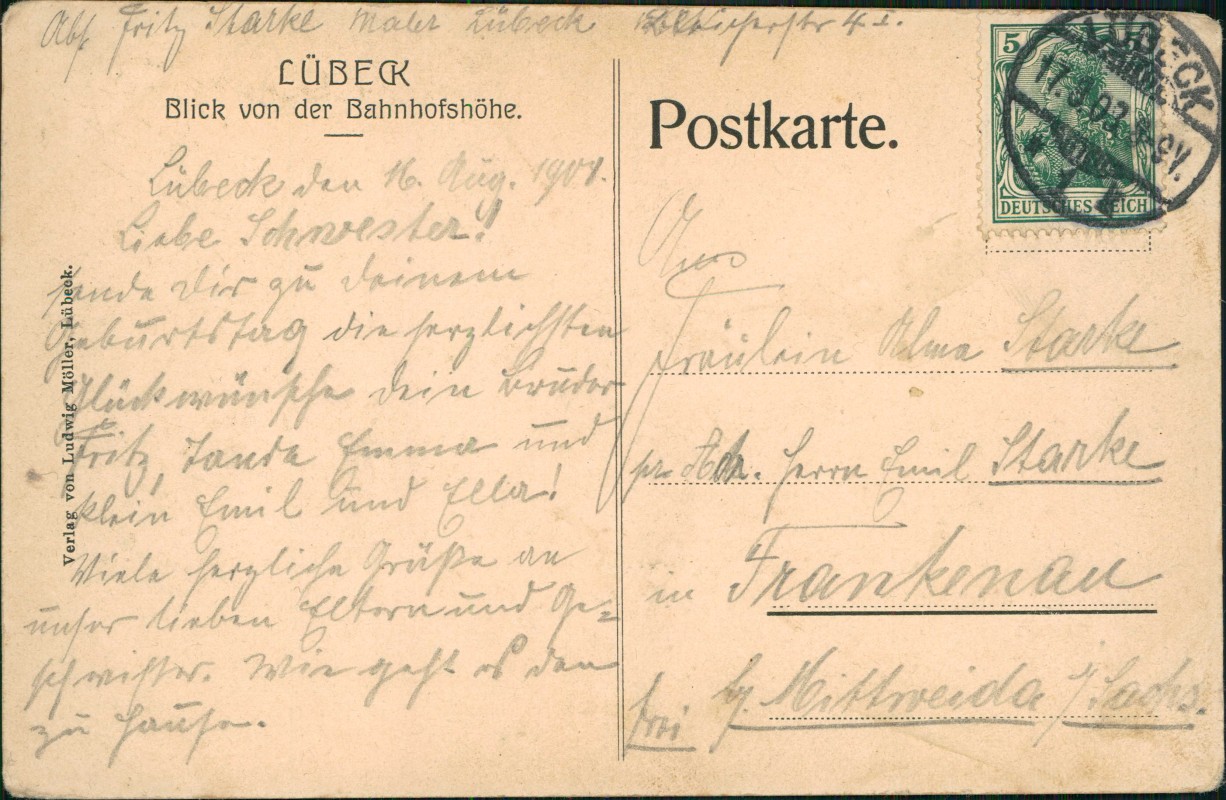 Abs. Fritz Starke Maler Lübeck 4 I.
LÜBECK
Blick von der Bahnhofshöhe.
Postkarte.
5
DEUTSCHES REICH
LÜBECK
17.
Verlag von Ludwig Möller, Lübeck.
Lübeck den 16. Aug. 190
Liebe Schwester!
sende Dir zu deinem
Geburtstag die herzlichsten
Glückwünsche dein Bruder
Fritz, Tande Emma und
klein Emil und Ella!
Viele herzliche Grüße an
unser lieben Eltern und Ge=
schwister. Wie geht es den
zu Hause.
An
Fräulein Alma Starke
pr. Adr. Herrn Emil Starke
in Frankenau
frei b/ Mittweida i/ Sachs.